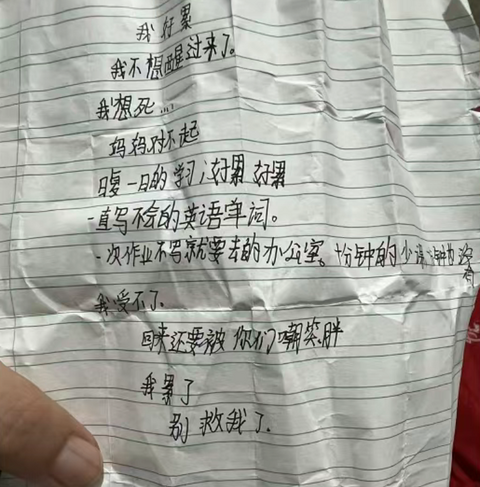 我好累
我不想醒过来了。
我想死...
妈妈对不起
日复一日的学习，好累 好累
一直写不会的英语单词。
一次作业不写就要去的办公室。十分钟的
我受不了
回来还要被你们嘲笑胖
我累了
别救我了.